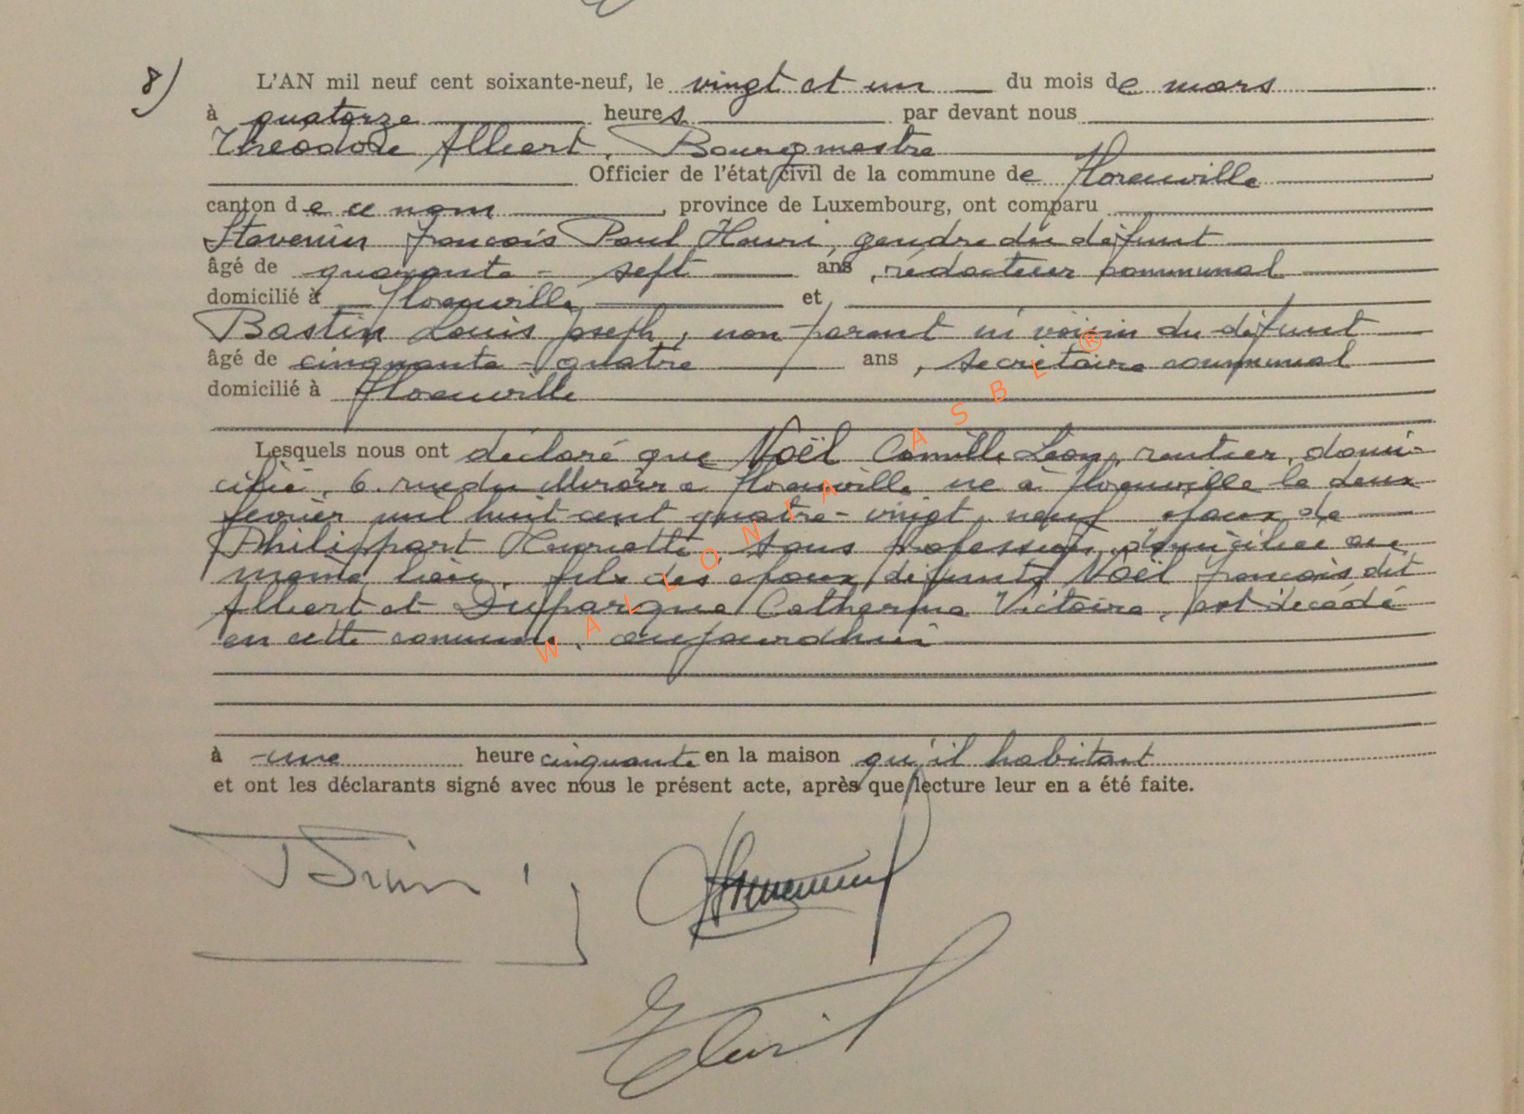 8) L'AN mil neuf cent soixante-neuf, le vingt et un du mois de mars
à quatorze heures par devant nous
Théodore Albert, Bourgmestre
Officier de l'état civil de la commune de Florenville
canton de ce nom, province de Luxembourg, ont comparu
Stevenin François Paul Henri, gendre du défunt
âgé de quarante-sept ans, rédacteur communal
domicilié à Florenville et
Bastin Louis Joseph, non parent ni voisin du défunt
âgé de cinquante-quatre ans, secrétaire communal
domicilié à Florenville
Lesquels nous ont déclaré que Noël Camille Léon, rentier, domi-
cilié, 6. rue du Miroir à Florenville né à Florenville le deux
février mil huit cent quatre-vingt neuf époux de
Philippart Henriette, sans profession, domiciliée au
même lieu, fils des époux défunts Noël François dit
Albert et Duparque Catherine Victoire, est décédé
en cette commune, aujourd'hui
à une heure cinquante en la maison qu'il habitait
et ont les déclarants signé avec nous le présent acte, après que lecture leur en a été faite.
WALLONIA ASBL ®